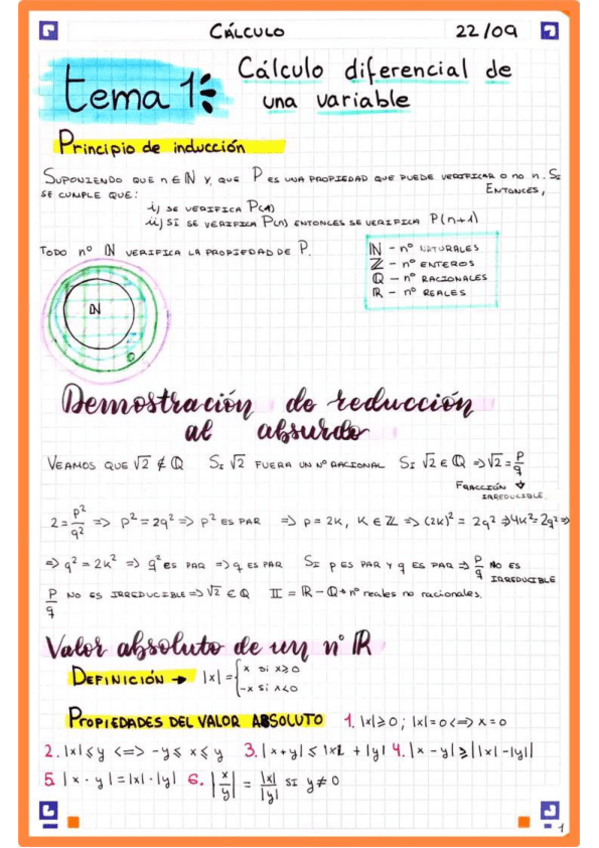 CÁLCULO 22/09
tema 1: Cálculo diferencial de
una variable
Principio de inducción
SUPONIENDO QUE n ∈ ℕ Y, QUE P ES UNA PROPIEDAD QUE PUEDE VERIFICAR O NO n. SI
SE CUMPLE QUE: ENTONCES,
i) SE VERIFICA P(1)
ii) SI SE VERIFICA P(n) ENTONCES SE VERIFICA P(n+1)
TODO nº ℕ VERIFICA LA PROPIEDAD DE P.
ℕ - nº NATURALES
ℤ - nº ENTEROS
ℚ - nº RACIONALES
ℝ - nº REALES
ℕ
Demostración de reducción
al absurdo
VEAMOS QUE √2 ∉ ℚ SI √2 FUERA UN Nº RACIONAL SI √2 ∈ ℚ => √2 = p/q
FRACCIÓN
IRREDUCIBLE.
2 = p²/q² => p² = 2q² => p² ES PAR => p = 2k, K ∈ ℤ => (2k)² = 2q² => 4k² = 2q² =>
=> q² = 2k² => q² ES PAR => q ES PAR SI p ES PAR Y q ES PAR => p/q NO ES
IRREDUCIBLE
p/q NO ES IRREDUCIBLE => √2 ∈ ℚ 𝕀 = ℝ - ℚ → nº reales no racionales.
Valor absoluto de un nº ℝ
DEFINICIÓN → |x| = { x si x≥0
-x si x<0
PROPIEDADES DEL VALOR ABSOLUTO 1. |x| ≥ 0 ; |x| = 0 <=> x = 0
2. |x| ≤ y <=> -y ≤ x ≤ y 3. |x+y| ≤ |x| + |y| 4. |x - y| ≥ ||x| - |y||
5. |x · y| = |x| · |y| 6. |x/y| = |x|/|y| SI y ≠ 0
1